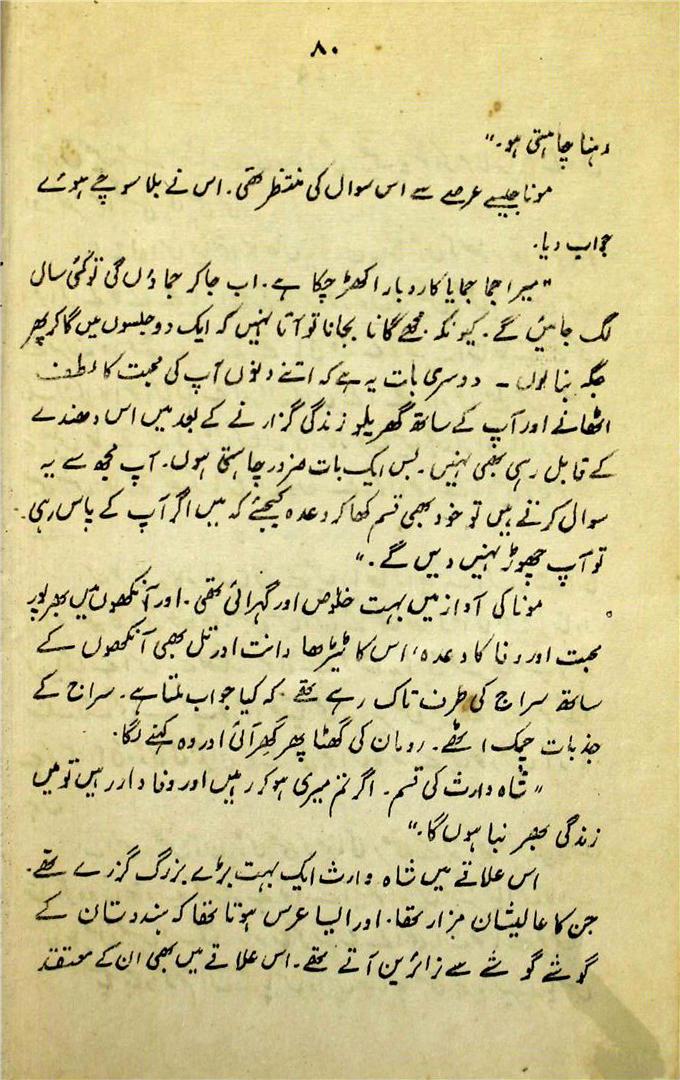 ۸۰
رہنا چاہتی ہو۔"
مونا جیسے عرصے سے اس سوال کی منتظر تھی۔ اس نے بلا سوچے ہوئے
جواب دیا۔
"میرا جما جمایا کاروبار اکھڑ چکا ہے۔ اب جا کر جماؤں گی تو کئی سال
لگ جائیں گے۔ کیونکہ مجھے گانا بجانا تو آتا نہیں کہ ایک دو جلسوں میں گا کر پھر
جگہ بنا لوں ۔ دوسری بات یہ ہے کہ اتنے دنوں آپ کی محبت کا لطف
اٹھانے اور آپ کے ساتھ گھریلو زندگی گزارنے کے بعد میں اس دھندے
کے قابل رہی بھی نہیں۔ بس ایک بات ضرور چاہتی ہوں۔ آپ مجھ سے یہ
سوال کرتے ہیں تو خود بھی قسم کھا کر وعدہ کیجئے کہ میں اگر آپ کے پاس رہی۔
تو آپ چھوڑ نہیں دیں گے۔"
مونا کی آواز میں بہت خلوص اور گہرائی تھی۔ اور آنکھوں میں بھرپور
محبت اور وفا کا وعدہ، اس کا ٹیڑھا دانت اور تل بھی آنکھوں کے
ساتھ سراج کی طرف تاک رہے تھے کہ کیا جواب ملتا ہے۔ سراج کے
جذبات چمک اٹھے۔ رومان کی گھٹا پھر گھر آئی اور وہ کہنے لگا۔
"شاہ وارث کی قسم۔ اگر تم میری ہو کر رہیں اور وفادار رہیں تو میں
زندگی بھر نباہوں گا۔"
اس علاقے میں شاہ وارث ایک بہت بڑے بزرگ گزرے تھے۔
جن کا عالیشان مزار تھا۔ اور ایسا عرس ہوتا تھا کہ ہندوستان کے
گوشے گوشے سے زائرین آتے تھے۔ اس علاقے میں بھی ان کے معتقد